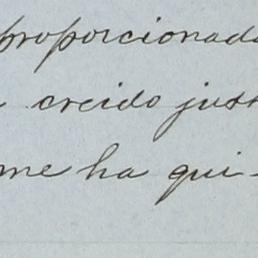 proporcionada
creido just
me ha qui-